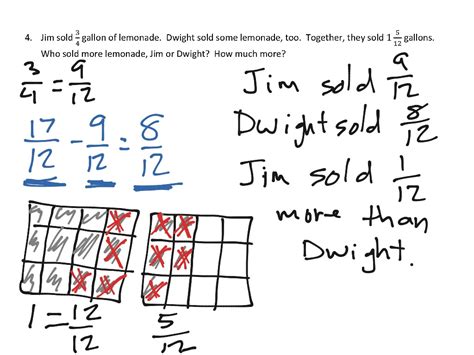 4. Jim sold 3/4 gallon of lemonade. Dwight sold some lemonade, too. Together, they sold 1 5/12 gallons.
Who sold more lemonade, Jim or Dwight? How much more?
3/4 = 9/12
17/12 - 9/12 = 8/12
1 = 12/12
5/12
Jim sold 9/12
Dwight sold 8/12
Jim sold 1/12
more than
Dwight.